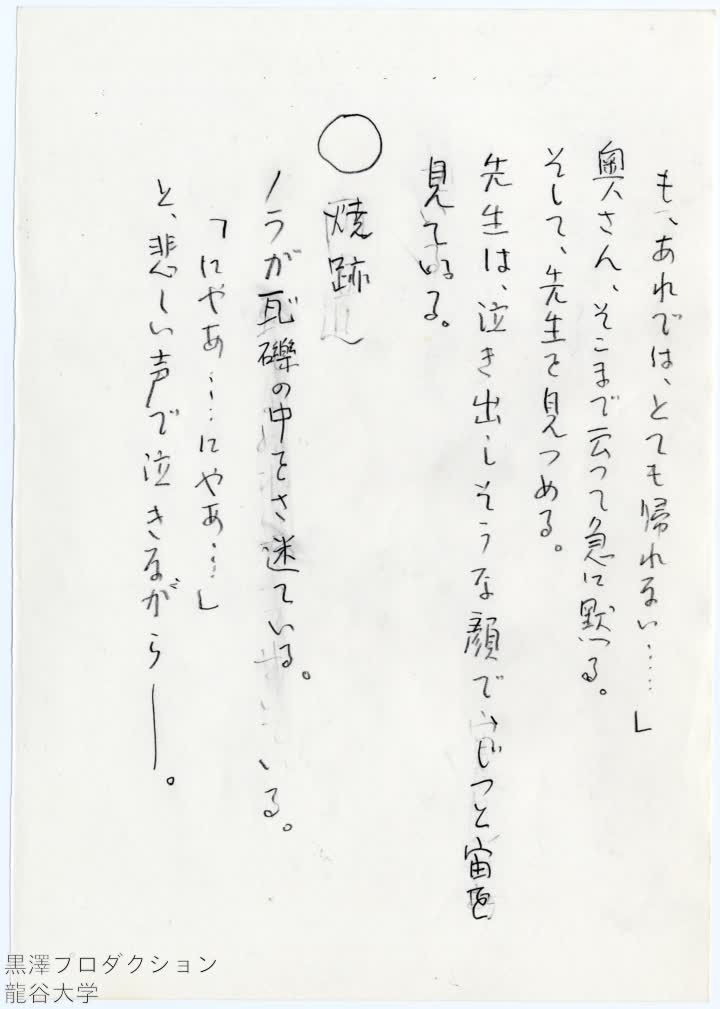 も、あれでは、とても帰れない……」
奥さん、そこまで云って急に黙る。
そして、先生を見つめる。
先生は、泣き出しそうな顔でじっと宙を
見ている。
○ 焼跡
ノラが瓦礫の中をさ迷ている。
「にやあ……にやあ…」
と、悲しい声で泣きながら――。
黒澤プロダクション
龍谷大学